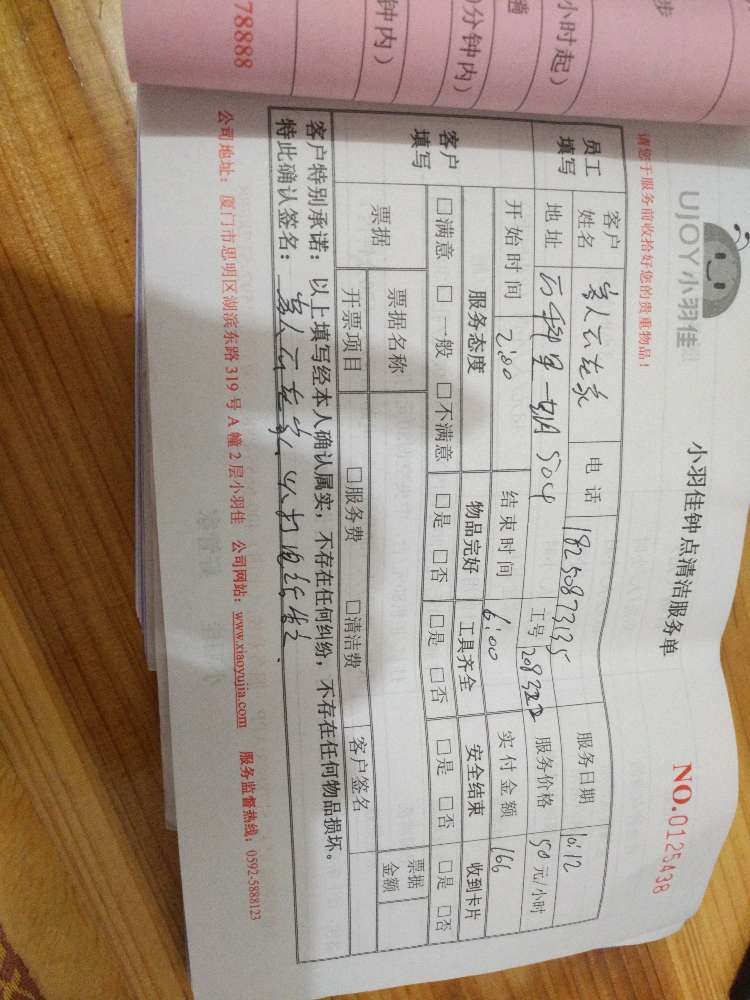 78888
钟内）
0分钟内）
小时起）
步
UJOY小羽佳
小羽佳钟点清洁服务单
NO.0125438
请您于服务前收拾好您的贵重物品！
员工填写
客户姓名
电话 18250873135
服务日期 10.12
地址
504
工号
服务价格 50元/小时
开始时间 2:00
结束时间 6:00
实付金额 166
客户填写
服务态度
物品完好
工具齐全
安全结束
收到卡片
□满意 □一般 □不满意
□是 □否
□是 □否
□是 □否
□是 □否
票据
票据名称
票据金额
开票项目
□服务费 □清洁费
客户签名
客户特别承诺：以上填写经本人确认属实，不存在任何纠纷，不存在任何物品损坏。
特此确认签名：
公司地址：厦门市思明区湖滨东路319号A幢2层小羽佳 公司网站：www.xiaoyujia.com 服务监督热线：0592-5888123